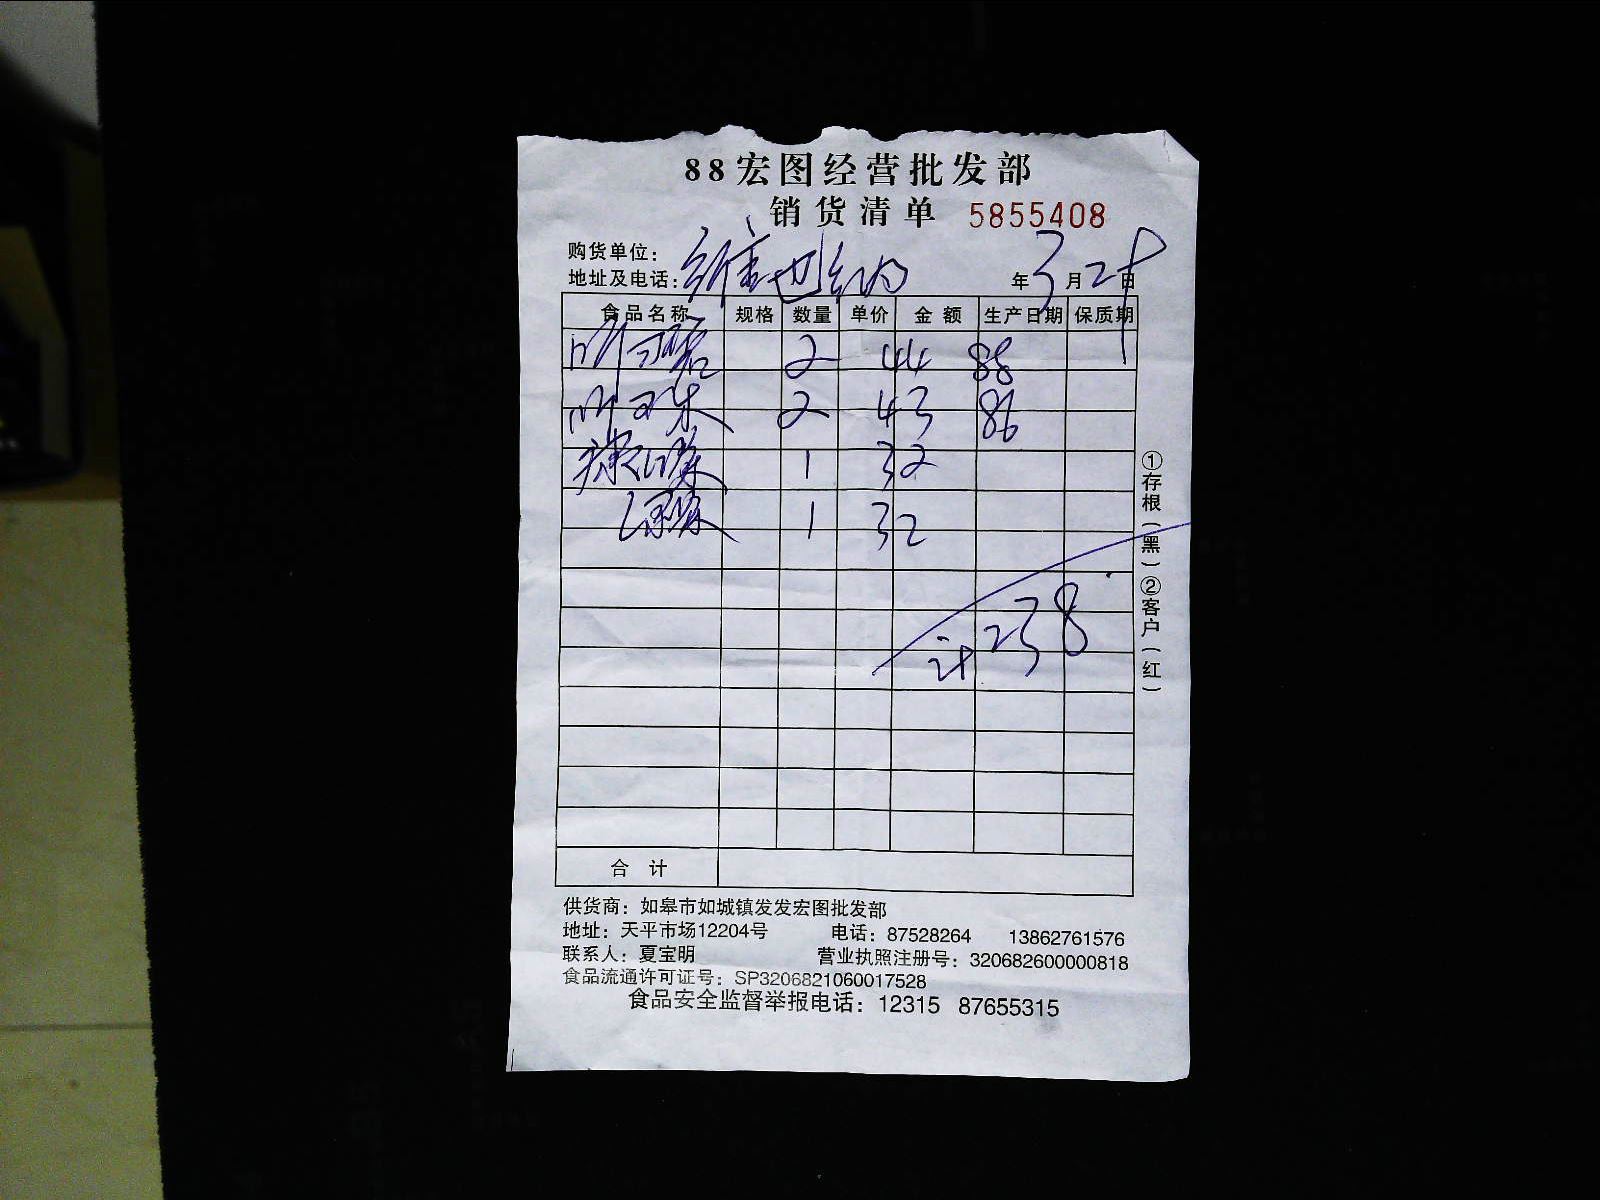 88宏图经营批发部
销货清单 5855408
购货单位：
地址及电话：维也纳 年3月29日
食品名称 规格 数量 单价 金额 生产日期 保质期
听可 2 44 88
听可乐 2 43 86
1 32
1 32
计238
合计
①存根（黑）②客户（红）
供货商：如皋市如城镇发发宏图批发部
地址：天平市场12204号 电话：87528264 13862761576
联系人：夏宝明 营业执照注册号：320682600000818
食品流通许可证号：SP3206821060017528
食品安全监督举报电话：12315 87655315